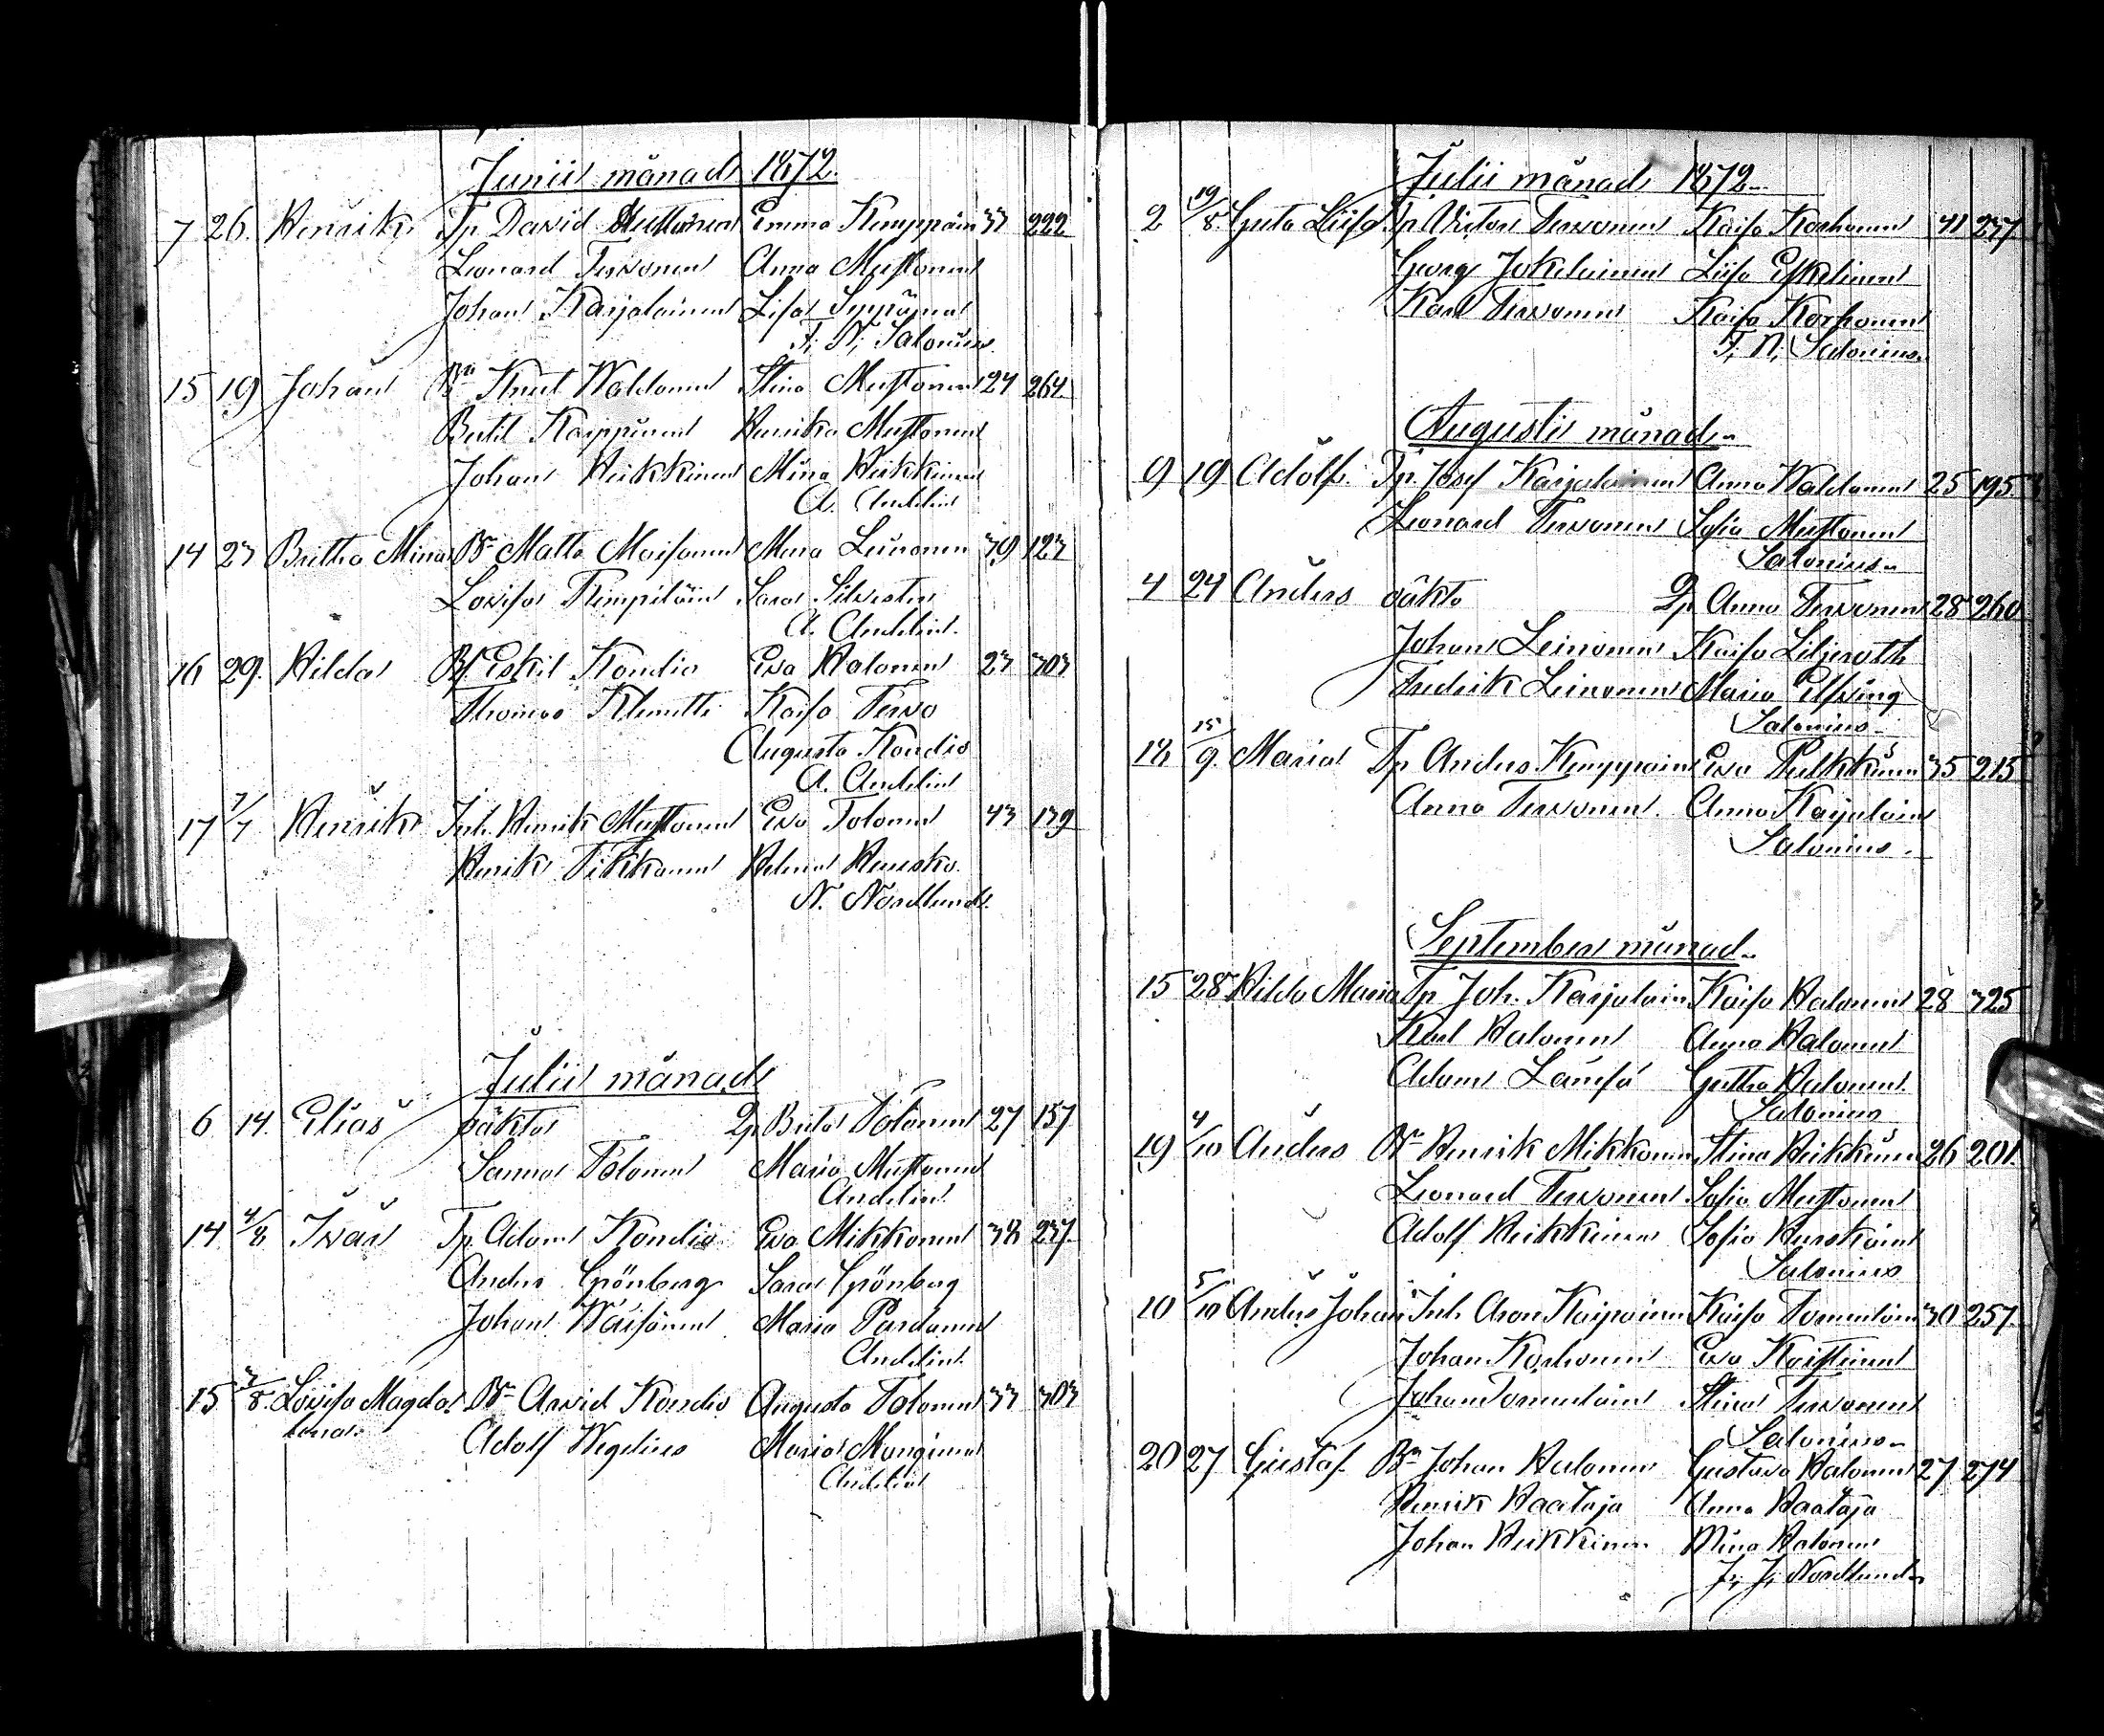 Junii månad 1872.
7 26. Henrik Tp David Mustonen Emma Kemppain 33 222
Leonard Tervonen Anna Mustonen
Johan Karjalainen Lisa
F. N. Salonius.
15 19 Johan Bn Knut Waldonen Stina Mustonen 24 264.
Bertil Kaippinen Henrika Mustonen
Johan Heikkinen Mina Heikkinen
A. Andelin
14 23 Britha Mina Bn Matts Moisanen Leinonen 39 123
Lovisa Sara Silvester
A. Andelin.
16 29. Hilda Bs Eskil Kondio Eva Halonen 23 303
Thomas Klemetti Kaisa Tervo
Augusta Kondio
A. Andelin
17 7/7 Henrik Inh. Henrik Mustonen Eva Tolonen 43 139
Henrik Tikkanen Helena Hursko.
N. Nordlund.
Julii månad
6 14. Elias oäkta Qp Brita Tolonen 27 157
Sanna Tolonen Maria Mustonen
Andelin.
14 4/8 Ivar Tp Adam Kondio Eva Mikkonen 38 237.
Anders Grönberg Sara Grönberg
Johan Väisänen Maria Pardanen
Andelin.
15 3/8. Lovisa Magda- Bn Arvid Kondio Augusta Tolonen 33 303
lena. Adolf Wegelius Maria Manginen
Andelin
Julii månad 1872
2 19/8. Greta Liisa Tp Victor Tervonen Kaisa Korhonen 41 237
Georg Jokelainen Liisa Eskelinen
Karl Tervonen Kaisa Korhonen
F. N. Salonius.
Augusti månad
9 19 Adolf. Tp. Josef Karjalainen Anna Waldonen 25 195.
Leonard Tervonen Sofia Mustonen
Salonius
4 24 Anders oäkta Qp Anna Tervonen 28 260
Johan Leinonen Kaisa Liljeroth
Fredrik Leinonen Maria Elfving
Salonius
18 15/9. Maria Tp Anders Kemppainen Eva Pulkkinen 35 215
Anna Tervonen. Anna Karjalain
Salonius.
September månad
15 28 Hilda Maria Tp Joh. Karjalain Kaisa Halonen 28 325
Karl Halonen Anna Halonen
Adam Lämsä Gretha Halonen.
Salonius
19 4/10 Anders Bn Henrik Mikkonen Stina Heikkinen 26 201.
Leonard Tervonen Sofia Mustonen
Adolf Heikkinen Sofia Hurskain
Salonius
10 5/10 Anders Johan Inh. Aron Kaipainen Kaisa Tornulain 30 257.
Johan Korhonen Eva Koistinen
Johan Tornulain Stina Tervonen
Salonius
20 27 Gustaf. Bn Johan Halonen Gustava Halonen 27 274
Henrik Haataja Anna Haataja
Johan Heikkinen Mina Halonen
J. J. Nordlund